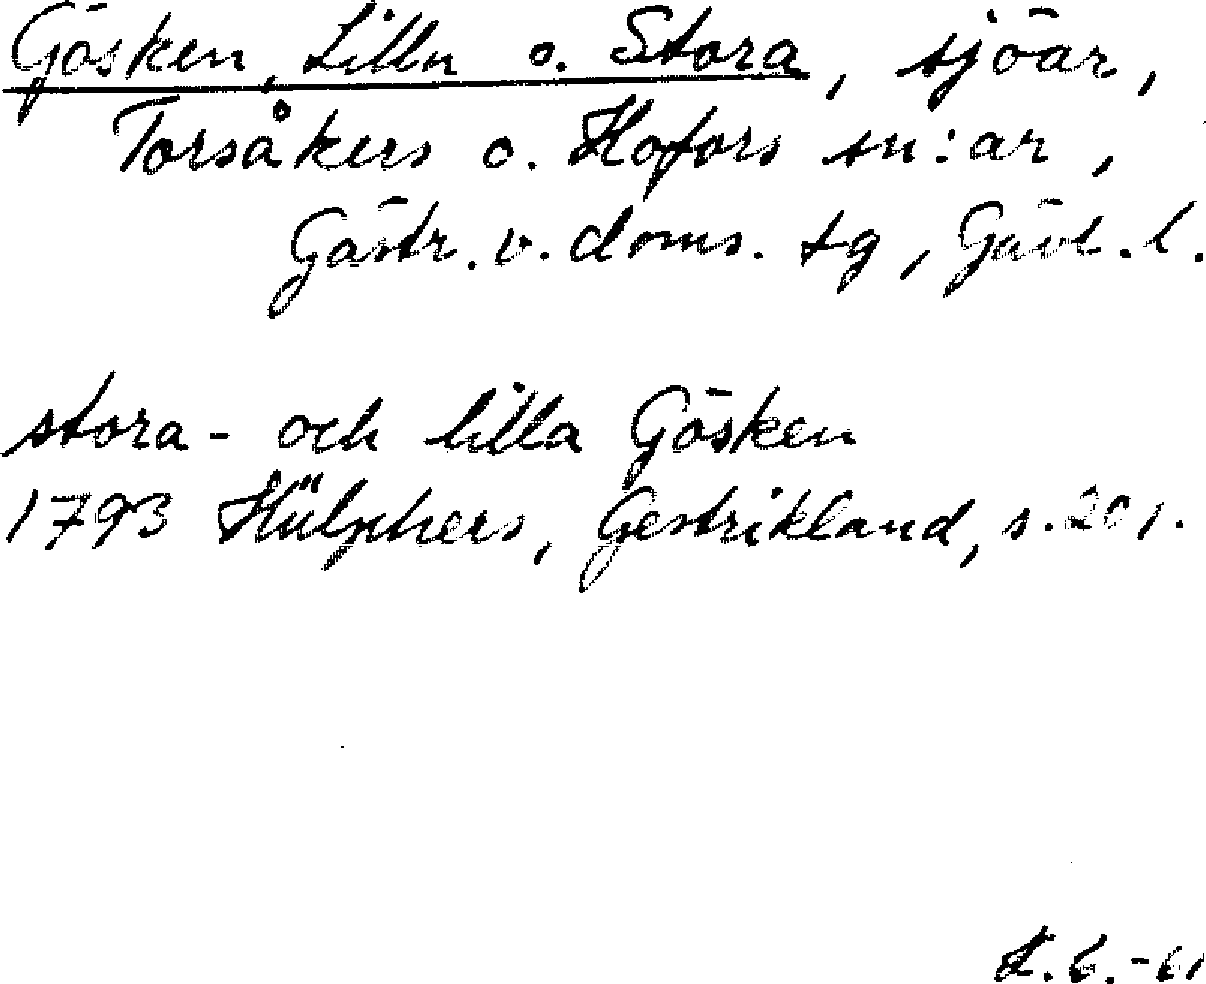 Gösken, Lilla o. Stora, sjöar,
Torsåkers o. Hofors sn:ar,
Gästr. v. doms. tg, Gävl. l.
stora- och lilla Gösken
1793 Hülphers, Gestrikland, s. 201.
K. G. -61